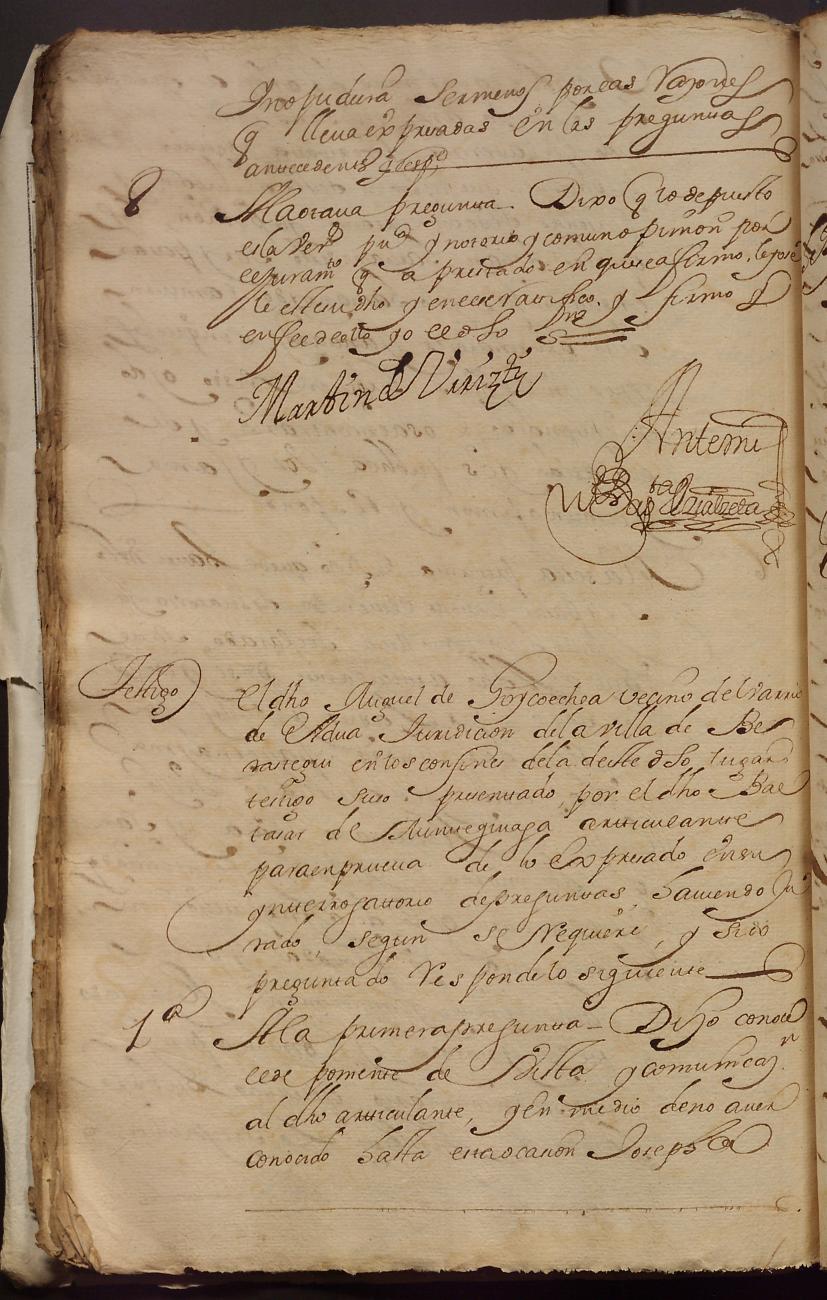 Y no pudiera ser menos por las Razones
q lleva expresadas en las preguntas
antecedentes y resp.do
8 A la octava pregunta. Dixo q lo depuesto
es la Verd pu.ca y notorio y comun opinion por
el juram.to q a prestado en que se afirmo, leyose
le el su dho y en el se ratifico. y firmo y
en fee de ello yo el dho sno
Martin de Veriz.tu
Antemi
Testigo) el dho Miguel de Goycoechea vecino del Varrio
de Aldua Juridicion de la villa de Be
rastegui en los confines de la deste dho lugar
testigo suso presentado por el dho Bal
tasar de articulante
para en prueva de lo expresado en su
ynterrogatorio de preguntas, haviendo Ju
rado segun se Requiere, y sido
preguntado Responde lo siguiente
1a A la primera pregunta - Dixo conoce
el deponiente de Vista y comunicaz.n
al dho articulante, y en medio de no aver
conocido hasta esta ocasion Josepha